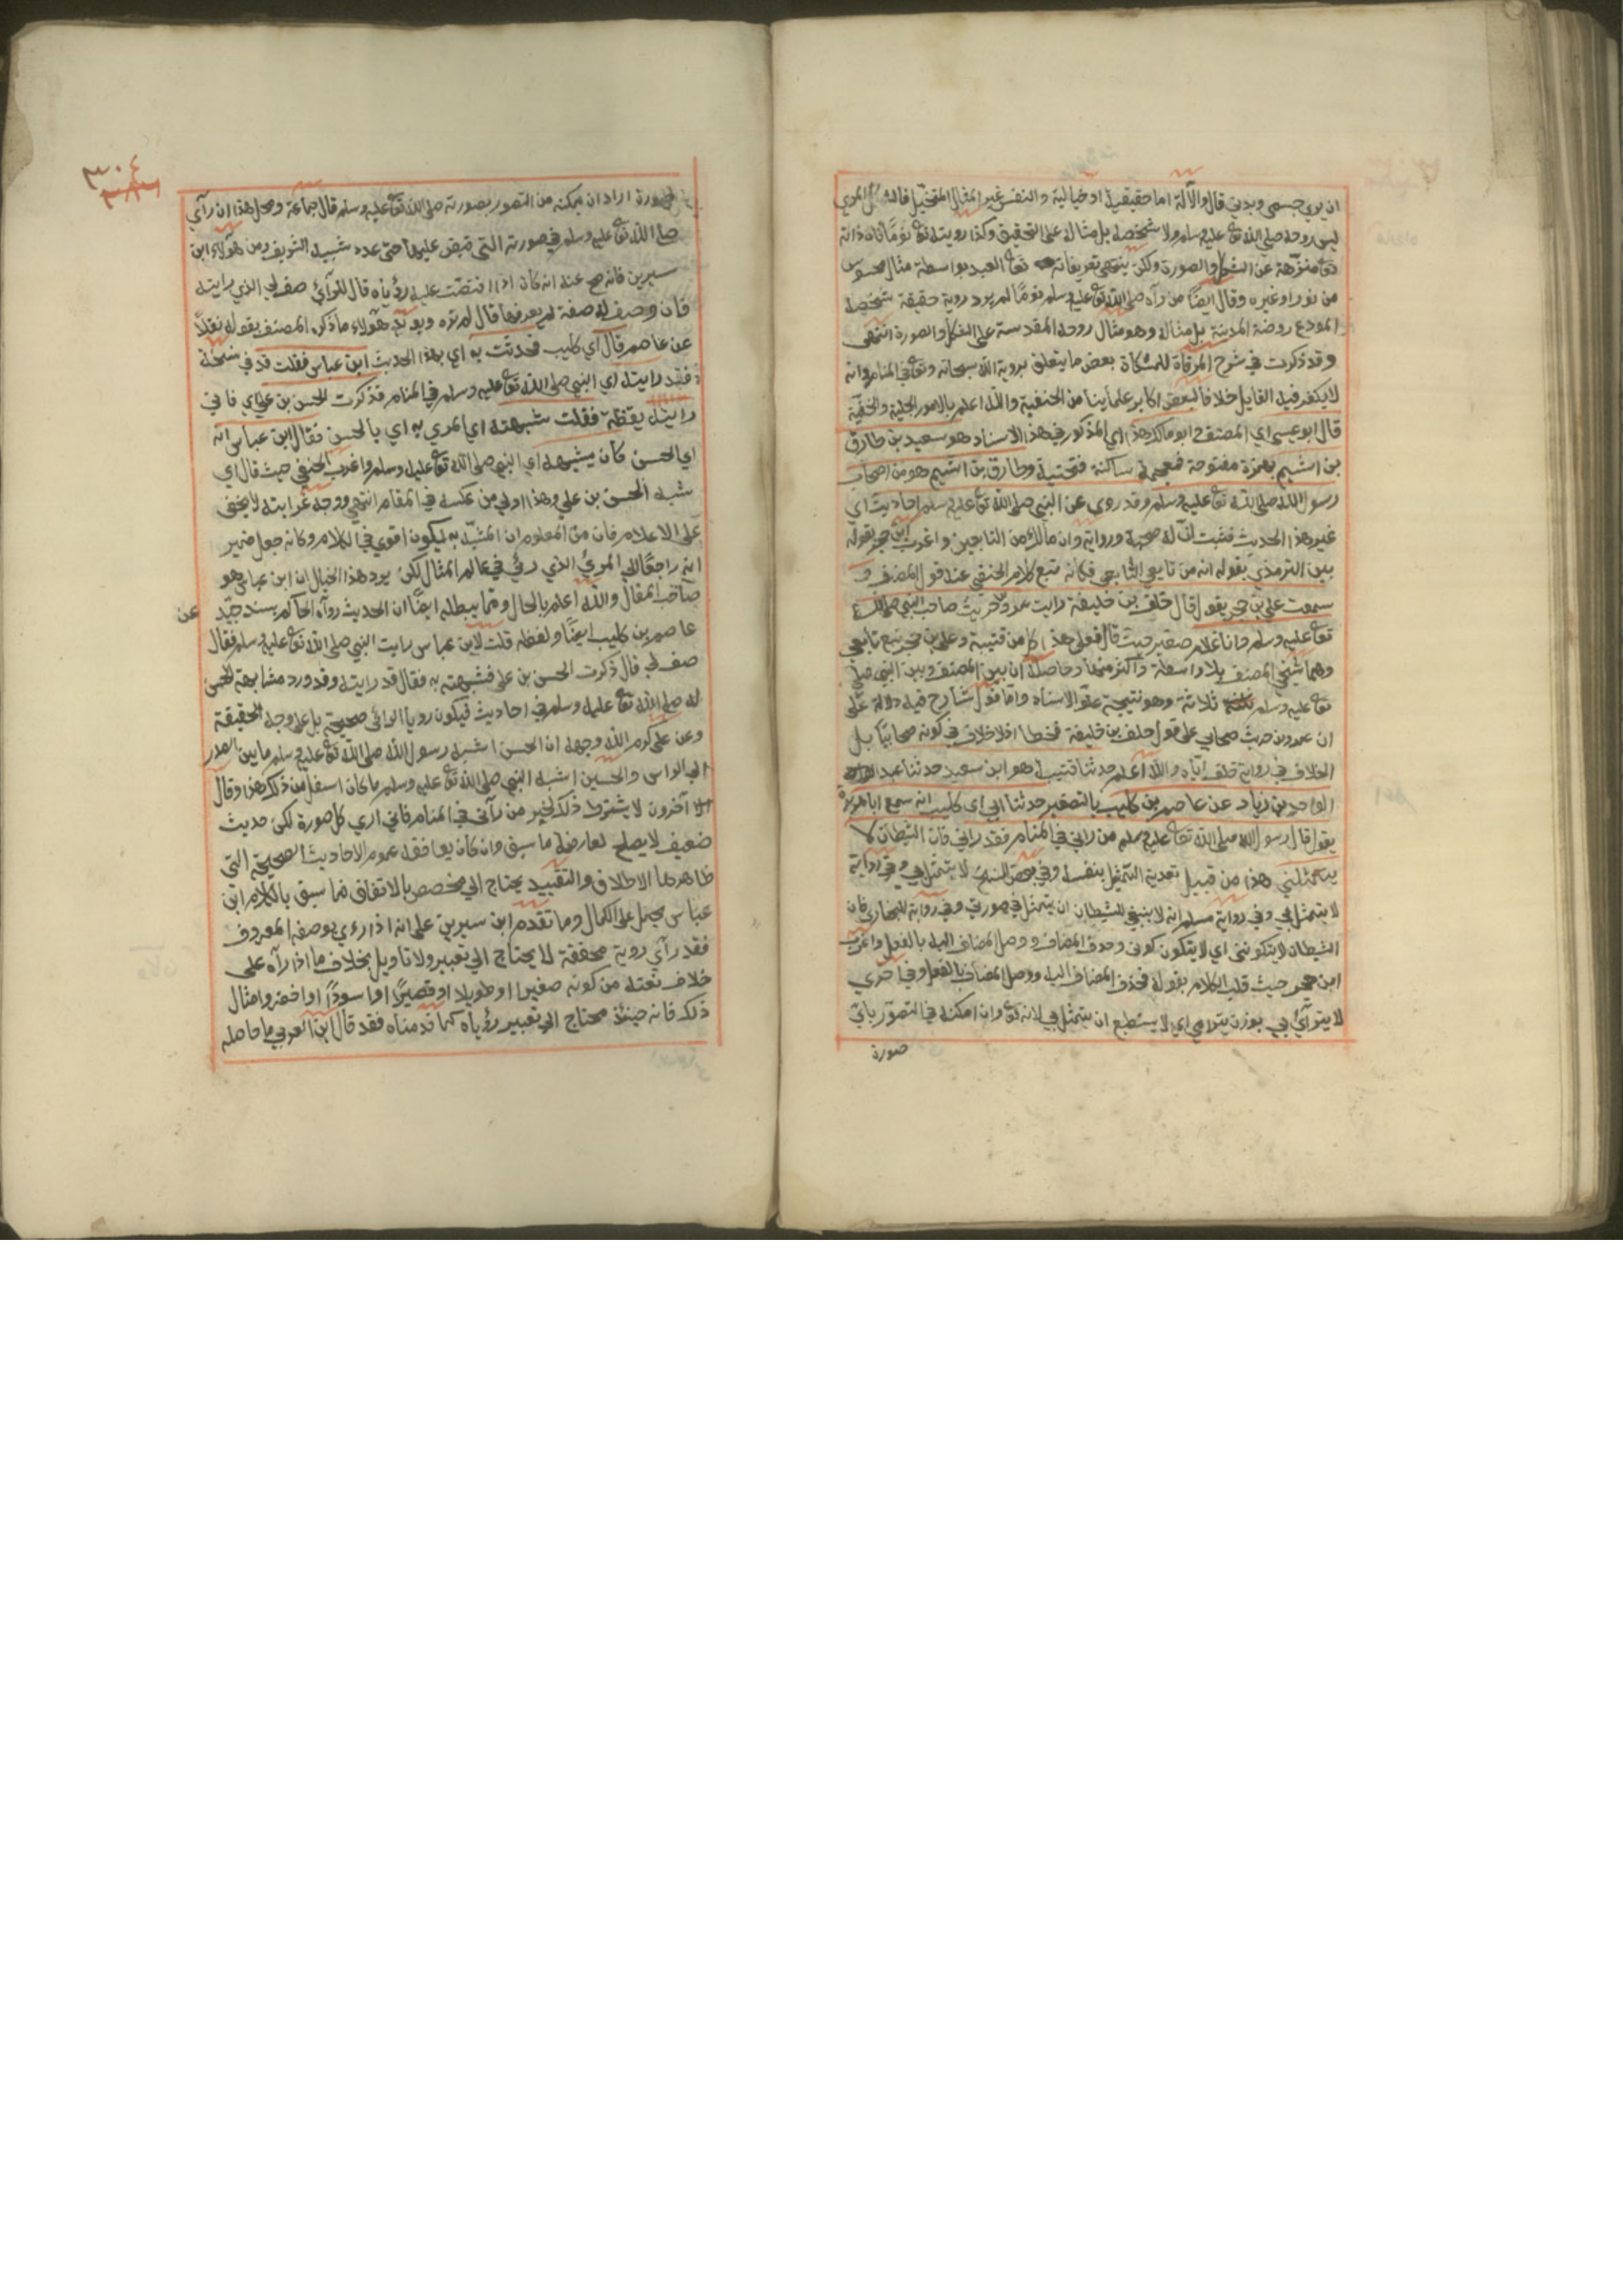 ان يري جسمي وبدني قال والآلة اما حقيقية او خيالية والنفس غير المثال المتخيل فالشكل المري
ليس روحه صلي الله تع عليه وسلم ولا شخصه بل مثاله علي التحقيق وكذا رويته تع نوما فان ذاته
تع منزهة عن الشكل والصورة ولكن ينتهي تعريفاته تع العبد بواسطة مثال محسوس
من نور او غيره وقال ايضا من رآه صلي الله تع عليه وسلم نوما لم يرد روية حقيقة شخصه
المودع روضة المدينة بل مثاله وهو مثال روحه المقدسة علي الشكل والصورة انتهي
وقد ذكرت في شرح المرقاة للمشكاة بعض ما يتعلق بروية الله سبحانه وتع في المنام وانه
لا يكفر فيه القايل خلافا لبعض اكابر علمأينا من الحنفية والله اعلم بالامور الجلية والخفية
قال ابو عيسي اي المصنف وابو مالك هذا اي المذكور في هذا الاسناد هو سعيد بن طارق
بن اشيم بهمزة مفتوحة فمعجمة ساكنة فتحتية وطارق بن اشيم هو من اصحاب
رسول الله صلي الله تع عليه وسلم وقد روي عن النبي صلي الله تع عليه وسلم احاديث اي
غير هذا الحديث فثبت ان له صحبة ورواية وان مالك من التابعين واغرب ابن حجر بقوله
بين الترمذي بقوله انه من تابعي التابعي فكانه تبع كلام الحنفي عند قول المصنف و
سمعت علي بن حجر يقول قال خلف بن خليفة رايت عمرو بن حريث صاحب النبي صلي الله
تع عليه وسلم وانا غلام صغير حيث قال فعلي هذا كل من قتيبة وعلي بن حجر تبع تابعي
وهما شيخي المصنف بلا واسطة واكثر منهما وحاصله ان بين المصنف وبين النبي صلي
تع عليه وسلم ثلاثة وهو نتيجة علو الاسناد واما قول شارح فيه دلالة علي
ان عمرو بن حريث صحابي علي قول خلف بن خليفة فخطا اذ لا خلاف في كونه صحابيا بل
الخلاف في رواية خلف اياه والله اعلم حدثنا قتيبة هو ابن سعيد حدثنا عبد
الواحد بن زياد عن عاصم بن كليب بالتصغير حدثنا ابي اي كليب انه سمع ابا هريرة
يقول قال رسول الله صلي الله تع عليه وسلم من راني في المنام فقد راني فان الشيطان لا
يتمثلني هذا من قبيل تعدية التمثل بنفسه وفي بعض النسخ لا يتمثل بي وفي رواية
لا يتمثل بي وفي رواية مسلم انه لا ينبغي للشيطان ان يتمثل في صورتي وفي رواية للبخاري فان
الشيطان لا يتكونني اي لا يتكون كوني وحذف المضاف ووصل المضاف اليه بالفعل واغرب
ابن حجر حيث قلب الكلام بقوله فحذف المضاف اليه ووصل المضاف بالفعل وفي اخري
لا يترآئي بي بوزن يترامي اي لا يستطيع ان يتمثل بي لانه تع وان امكنه في التصور باي
صورة
٣٠٤
صورة اراد ان يمكنه من التصور بصورته صلي الله تع عليه وسلم قال جماعة ومحل هذا ان رآي
صلي الله تع عليه وسلم في صورته التي قبض عليها حتي عدد شيبه الشريف ومن هولاء ابن
سيرين فانه صح عنه انه كان اذا اقتصت عليه رؤياه قال للرآئي صف لي الذي رايته
فان وصف له صفة لم يعرفها قال لم تره ويويد هولاء ما ذكره المصنف بقوله نقلا
عن عاصم قال اي كليب فحدثت به اي بهذا الحديث ابن عباس فقلت قد في نسخة
فقد رايته اي النبي صلي الله تع عليه وسلم في المنام فذكرت الحسن بن علي اي فاني
رايته يقظة فقلت شبهته اي المري به اي بالحسن فقال ابن عباس انه
اي الحسن كان يشبهه اي النبي صلي الله تع عليه وسلم واغرب الحنفي حيث قال اي
شبه الحسن بن علي وهذا اولي من عكسه في المقام انتهي ووجه غرابته لا يخفي
علي الاعلام فان من المعلوم ان المشبه به ليكون اقوي في الكلام وكانه جعل ضمير
انه راجعا الي المري الذي رئي في عالم المثال لكن يرد هذا الخيال ان ابن عباس هو
صاحب المقال والله اعلم بالحال ومما يبطله ايضا ان الحديث رواه الحاكم بسند جيد
عن
عاصم بن كليب ايضا ولفظه قلت لابن عباس رايت النبي صلي الله تع عليه وسلم فقال
صف لي قال ذكرت الحسن بن علي فشبهته به فقال قد رايته وقد ورد مشابهة الحسن
له صلي الله تع عليه وسلم في احاديث فيكون رويا الرائي صحيحة بل علي وجه الحقيقة
وعن علي كرم الله وجهه ان الحسن اشبه رسول الله صلي الله تع عليه وسلم ما بين الصدر
الي الراس والحسين اشبه النبي صلي الله تع عليه وسلم ما كان اسفل من ذلك هذا وقال
آخرون لا يشترط ذلك لخبر من رآني في المنام فاني اري كل صورة لكن حديث
ضعيف لا يصلح لمعارضة ما سبق وان كان يوافقه عموم الاحاديث الصحيحة التي
ظاهرها الاطلاق والتقييد يحتاج الي مخصص بالاتفاق فما سبق بالكلام ابن
عباس يحمل علي الكمال وما تقدم ابن سيرين علي انه اذا رءي بوصفه المعروف
فقد رآي روية محققة لا يحتاج الي تعبير ولا تاويل بخلاف ما اذا رآه علي
خلاف نعته من كونه صغيرا او طويلا او قصيرا او اسودا او اخضر وامثال
ذلك فانه حينئذ محتاج الي تعبير رؤياه كما قدمناه فقد قال ابن العربي ما حاصله